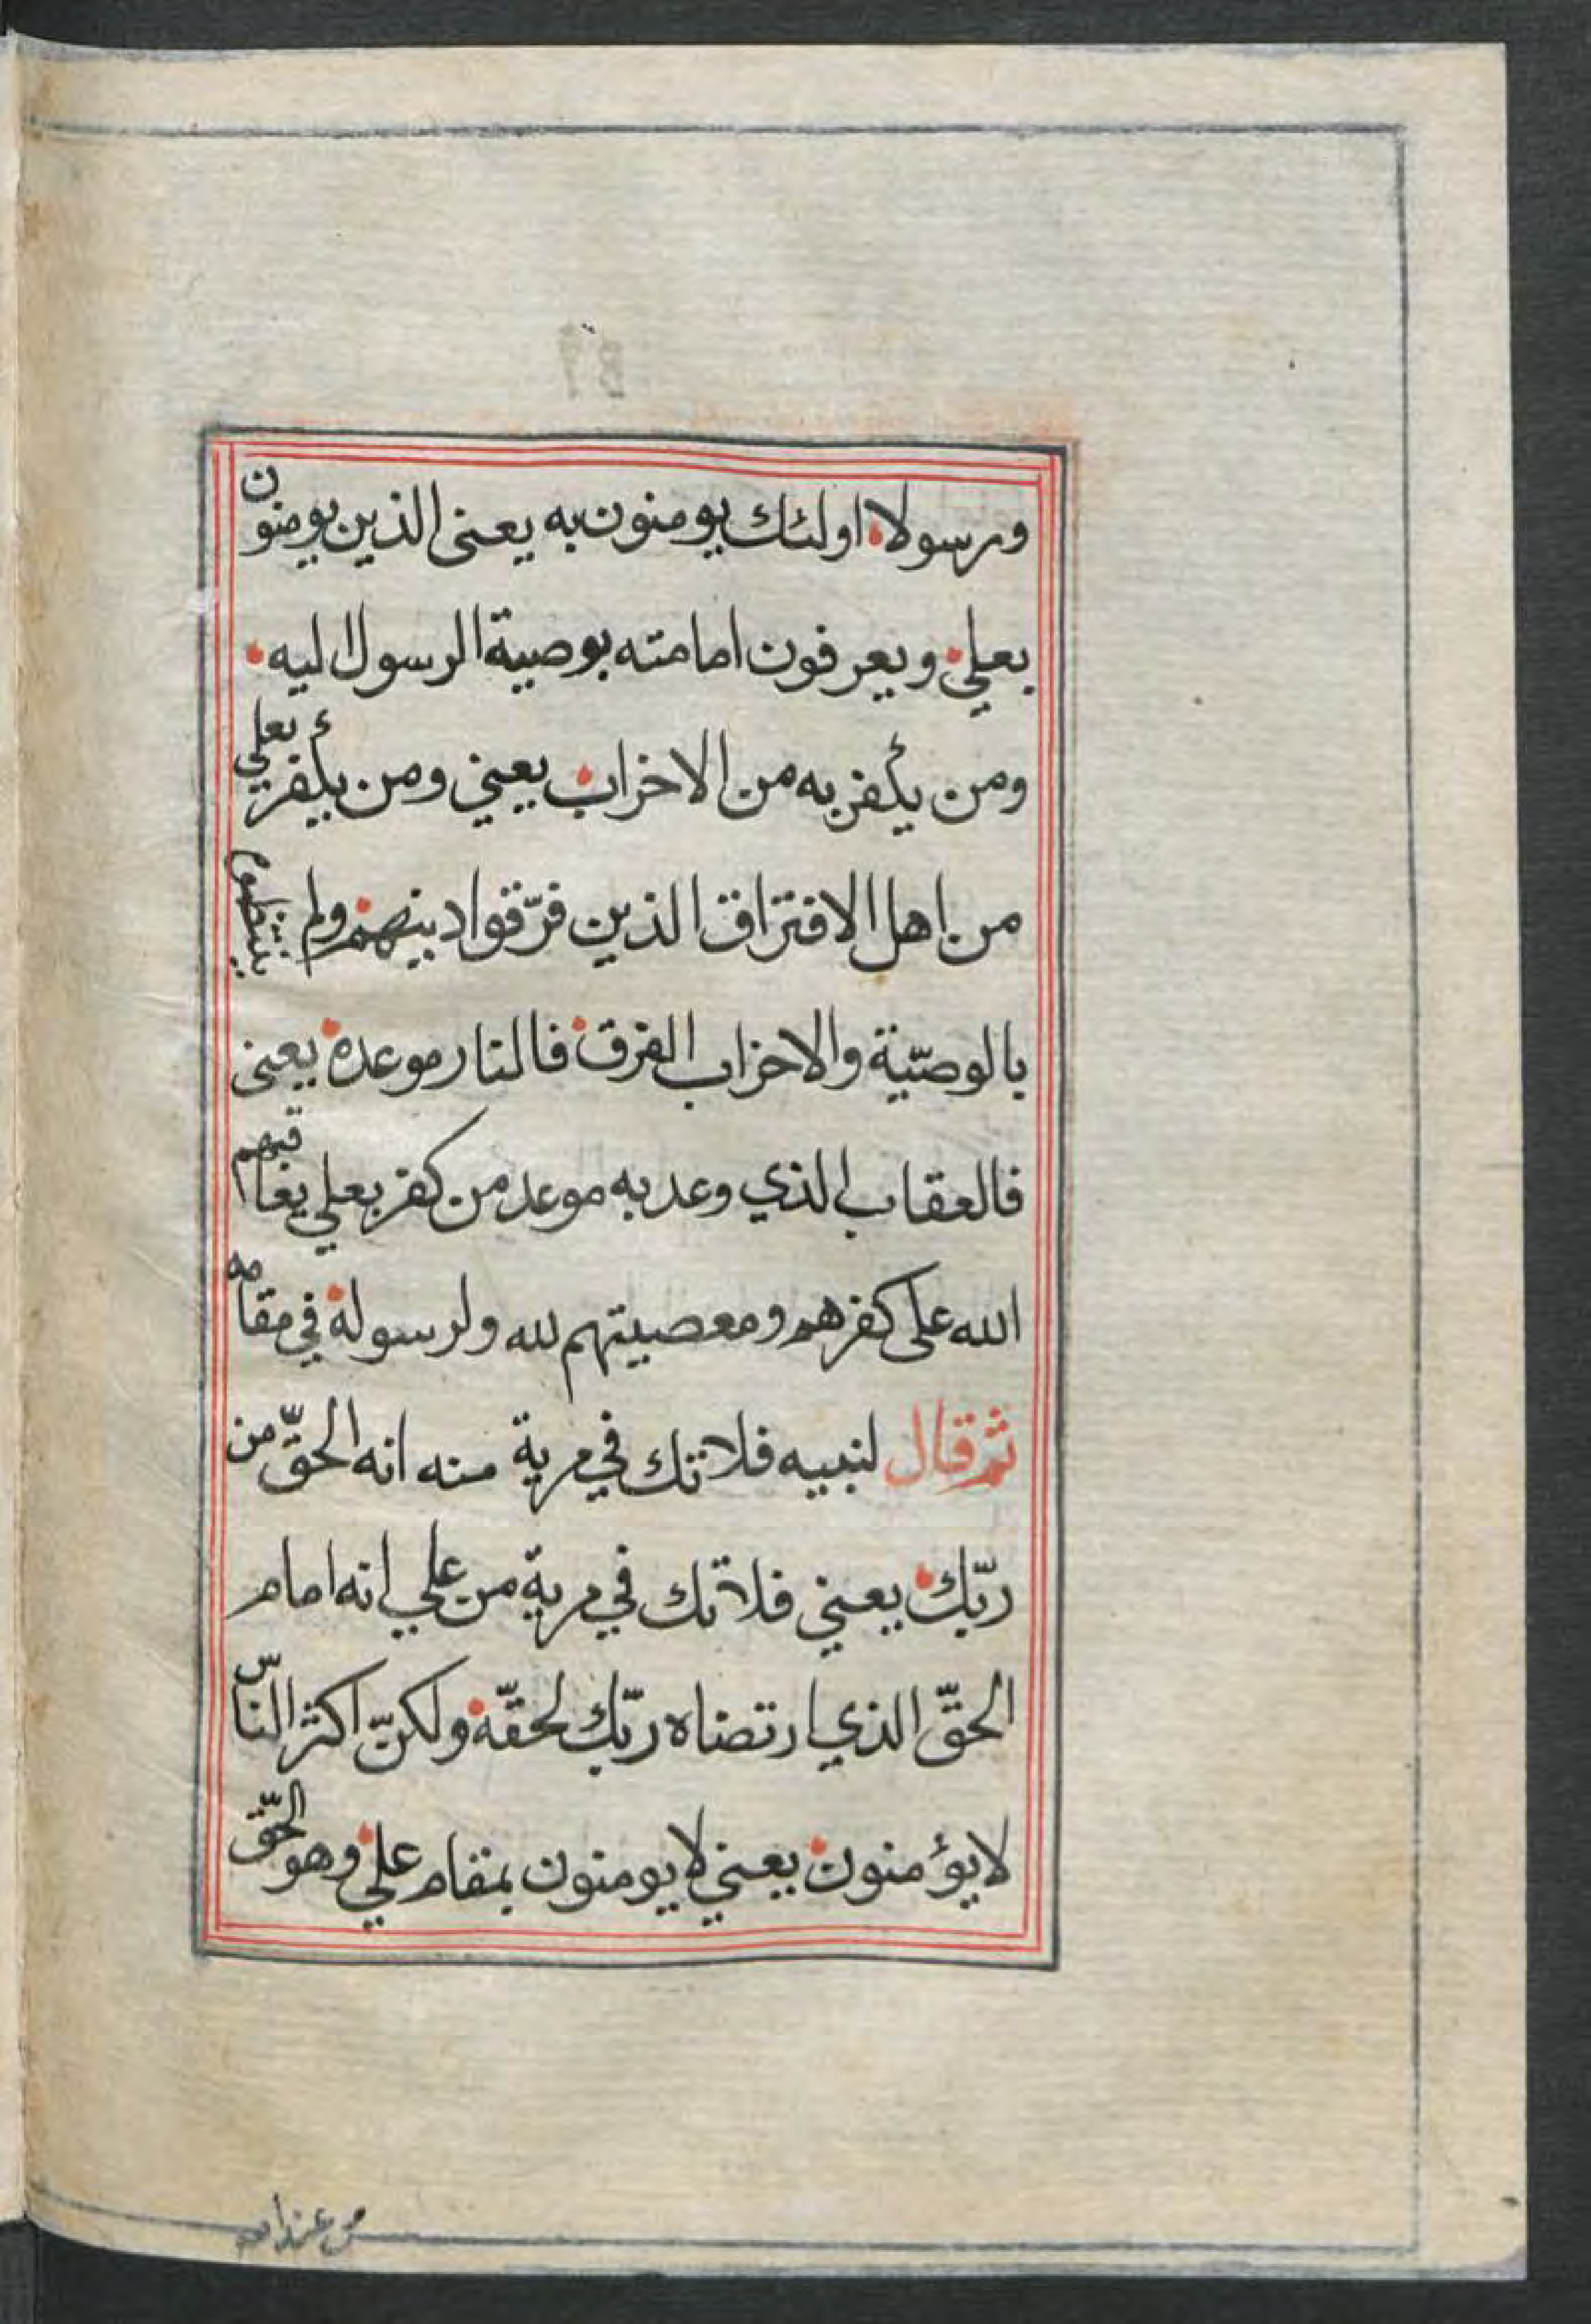 ورسولا اولئك يومنون به يعنى الذين يومنون
بعلي ويعرفون امامته بوصية الرسول اليه
ومن يكفر به من الاخراب يعيني ومن يكفر بعلي
من اهل الافتراق الذين فرّقوا دينهم ولم
بالوصيّة والاحزاب الفرق فالنار موعده يعنى
فالعقاب الذي وعد به موعد من كفر بعلي يعاقبهم
الله على كفرهم ومعصيتهم لله ولرسوله في مقامه
ثم قال لنبيه فلا تك في مرية منه انه الحقّ من
ربّك يعيني فلا تك في مرية من علي انه امام
الحقّ الذي ارتضاه ربّك لحقّه ولكنّ اكثر النّاس
لا يؤمنون يعيني لا يومنون بمقام علي وهو الحقّ
من عند الله